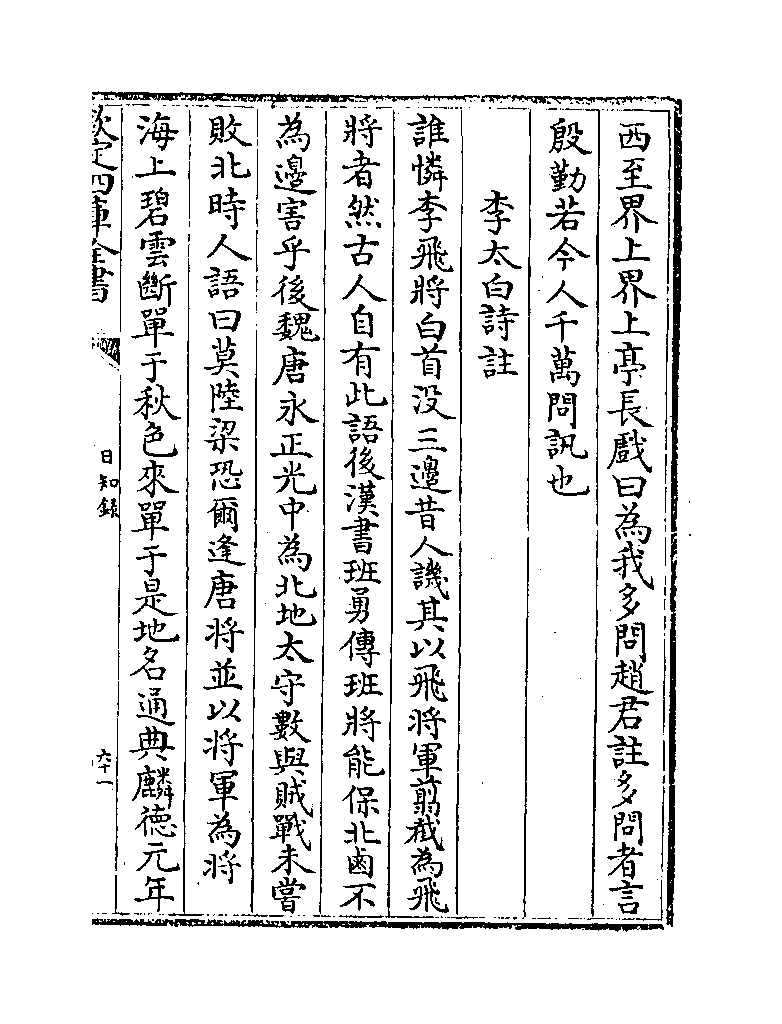 西至界上界上亭長戲曰為我多問趙君註多問者言
殷勤若今人千萬問訊也
李太白詩註
誰憐李飛將白首没三邊昔人譏其以飛將軍翦截為飛
將者然古人自有此語後漢書班勇傳班將能保北鹵不
為邊害乎後魏唐永正光中為北地太守數與賊戰未嘗
敗北時人語曰莫陸梁恐爾逢唐將並以將軍為將
海上碧雲斷單于秋色來單于是地名通典麟德元年
欽定四庫全書
日知錄
六十一